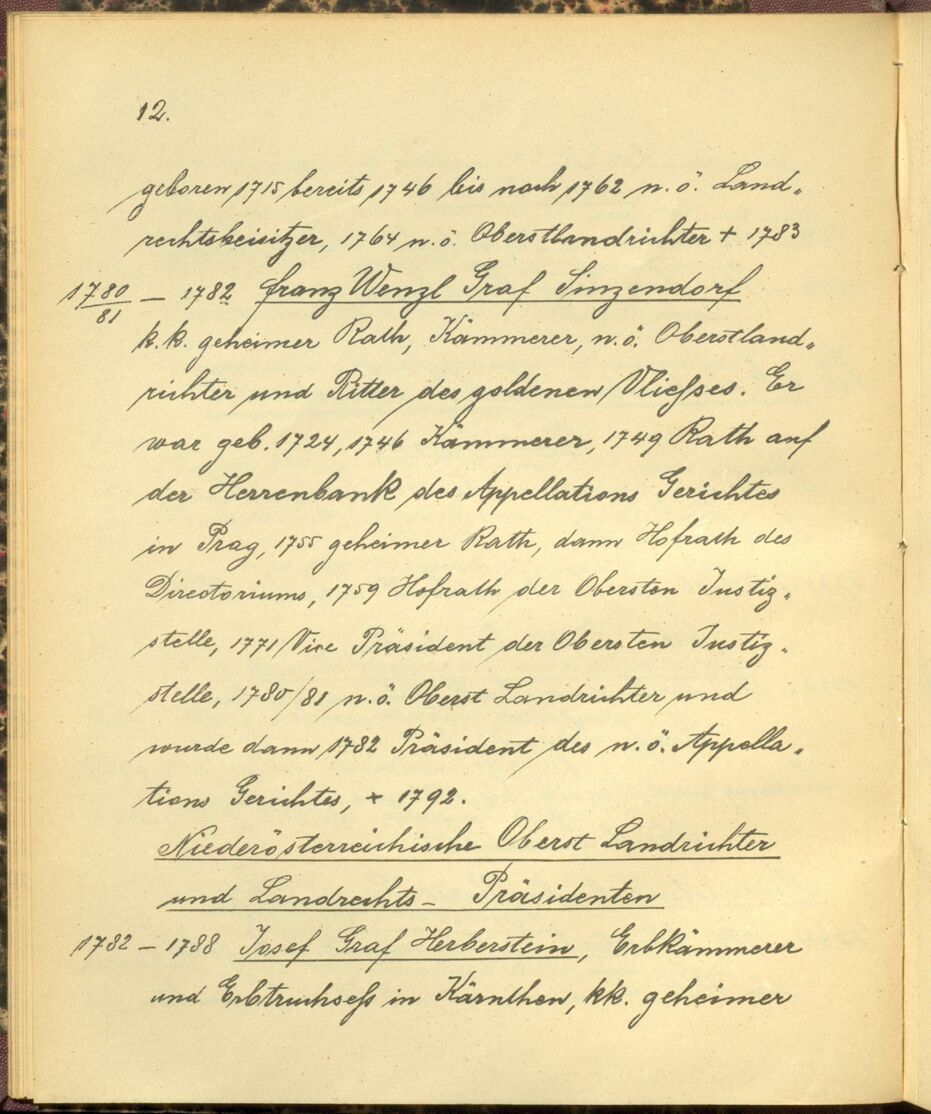 12.
geboren 1715 bereits 1746 bis nach 1762 n. ö. Land-
rechtsbeisitzer, 1764 n. ö. Oberstlandrichter + 1783
1780/81 – 1782 Franz Wenzl Graf Sinzendorf
k. k. geheimer Rath, Kämmerer, n. ö. Oberstland-
richter und Ritter des goldenen Vließes. Er
war geb. 1724, 1746 Kämmerer, 1749 Rath auf
der Herrenbank des Appellations Gerichtes
in Prag, 1755 geheimer Rath, dann Hofrath des
Directoriums, 1759 Hofrath der Obersten Justiz-
stelle, 1771 Vice Präsident der Obersten Justiz-
stelle, 1780/81 n. ö. Oberst Landrichter und
wurde dann 1782 Präsident des n. ö. Appella-
tions Gerichtes, + 1792.
Niederösterreichische Oberst Landrichter
und Landrechts – Präsidenten
1782 – 1788 Josef Graf Herberstein, Erbkämmerer
und Erbtruchseß in Kärnthen, kk. geheimer